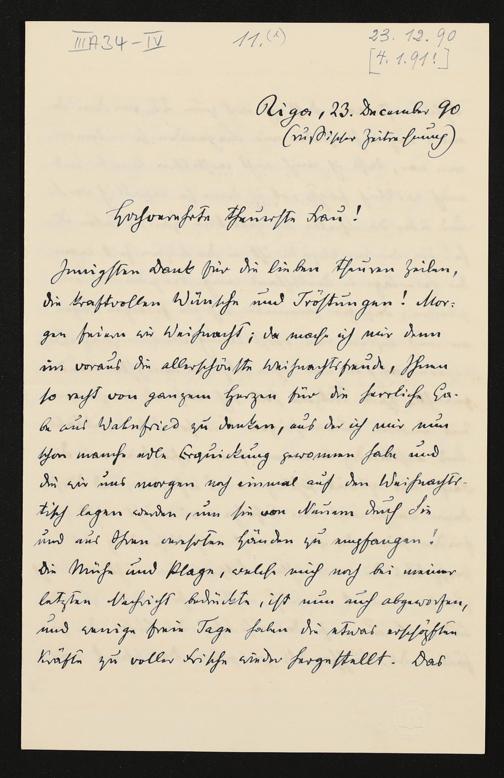 III A 34 - IV
11. (1)
23. 12. 90
[4. 1. 91!]
Riga, 23. December 90
(russischer Zeitrechnung)
Hochverehrte theuerste Frau!
Innigsten Dank für die lieben theuren Zeilen,
die kraftvollen Wünsche und Tröstungen! Mor-
gen feiern wir Weihnacht; da mache ich mir denn
im voraus die allerschönste Weihnachtsfreude, Ihnen
so recht von ganzem Herzen für die herrliche Ga-
be aus Wahnfried zu danken, aus der ich mir nun
schon manche edle Erquickung gewonnen habe und
die wir uns morgen noch einmal auf den Weihnachts-
tisch legen werden, um sie von Neuem durch Sie
und aus Ihren verehrten Händen zu empfangen!
Die Mühe und Plage, welche mich noch bei meiner
letzten Nachricht bedrückte, ist nun auch abgeworfen,
und wenige freie Tage haben die etwas erschöpften
Kräfte zu voller Frische wieder hergestellt. Das